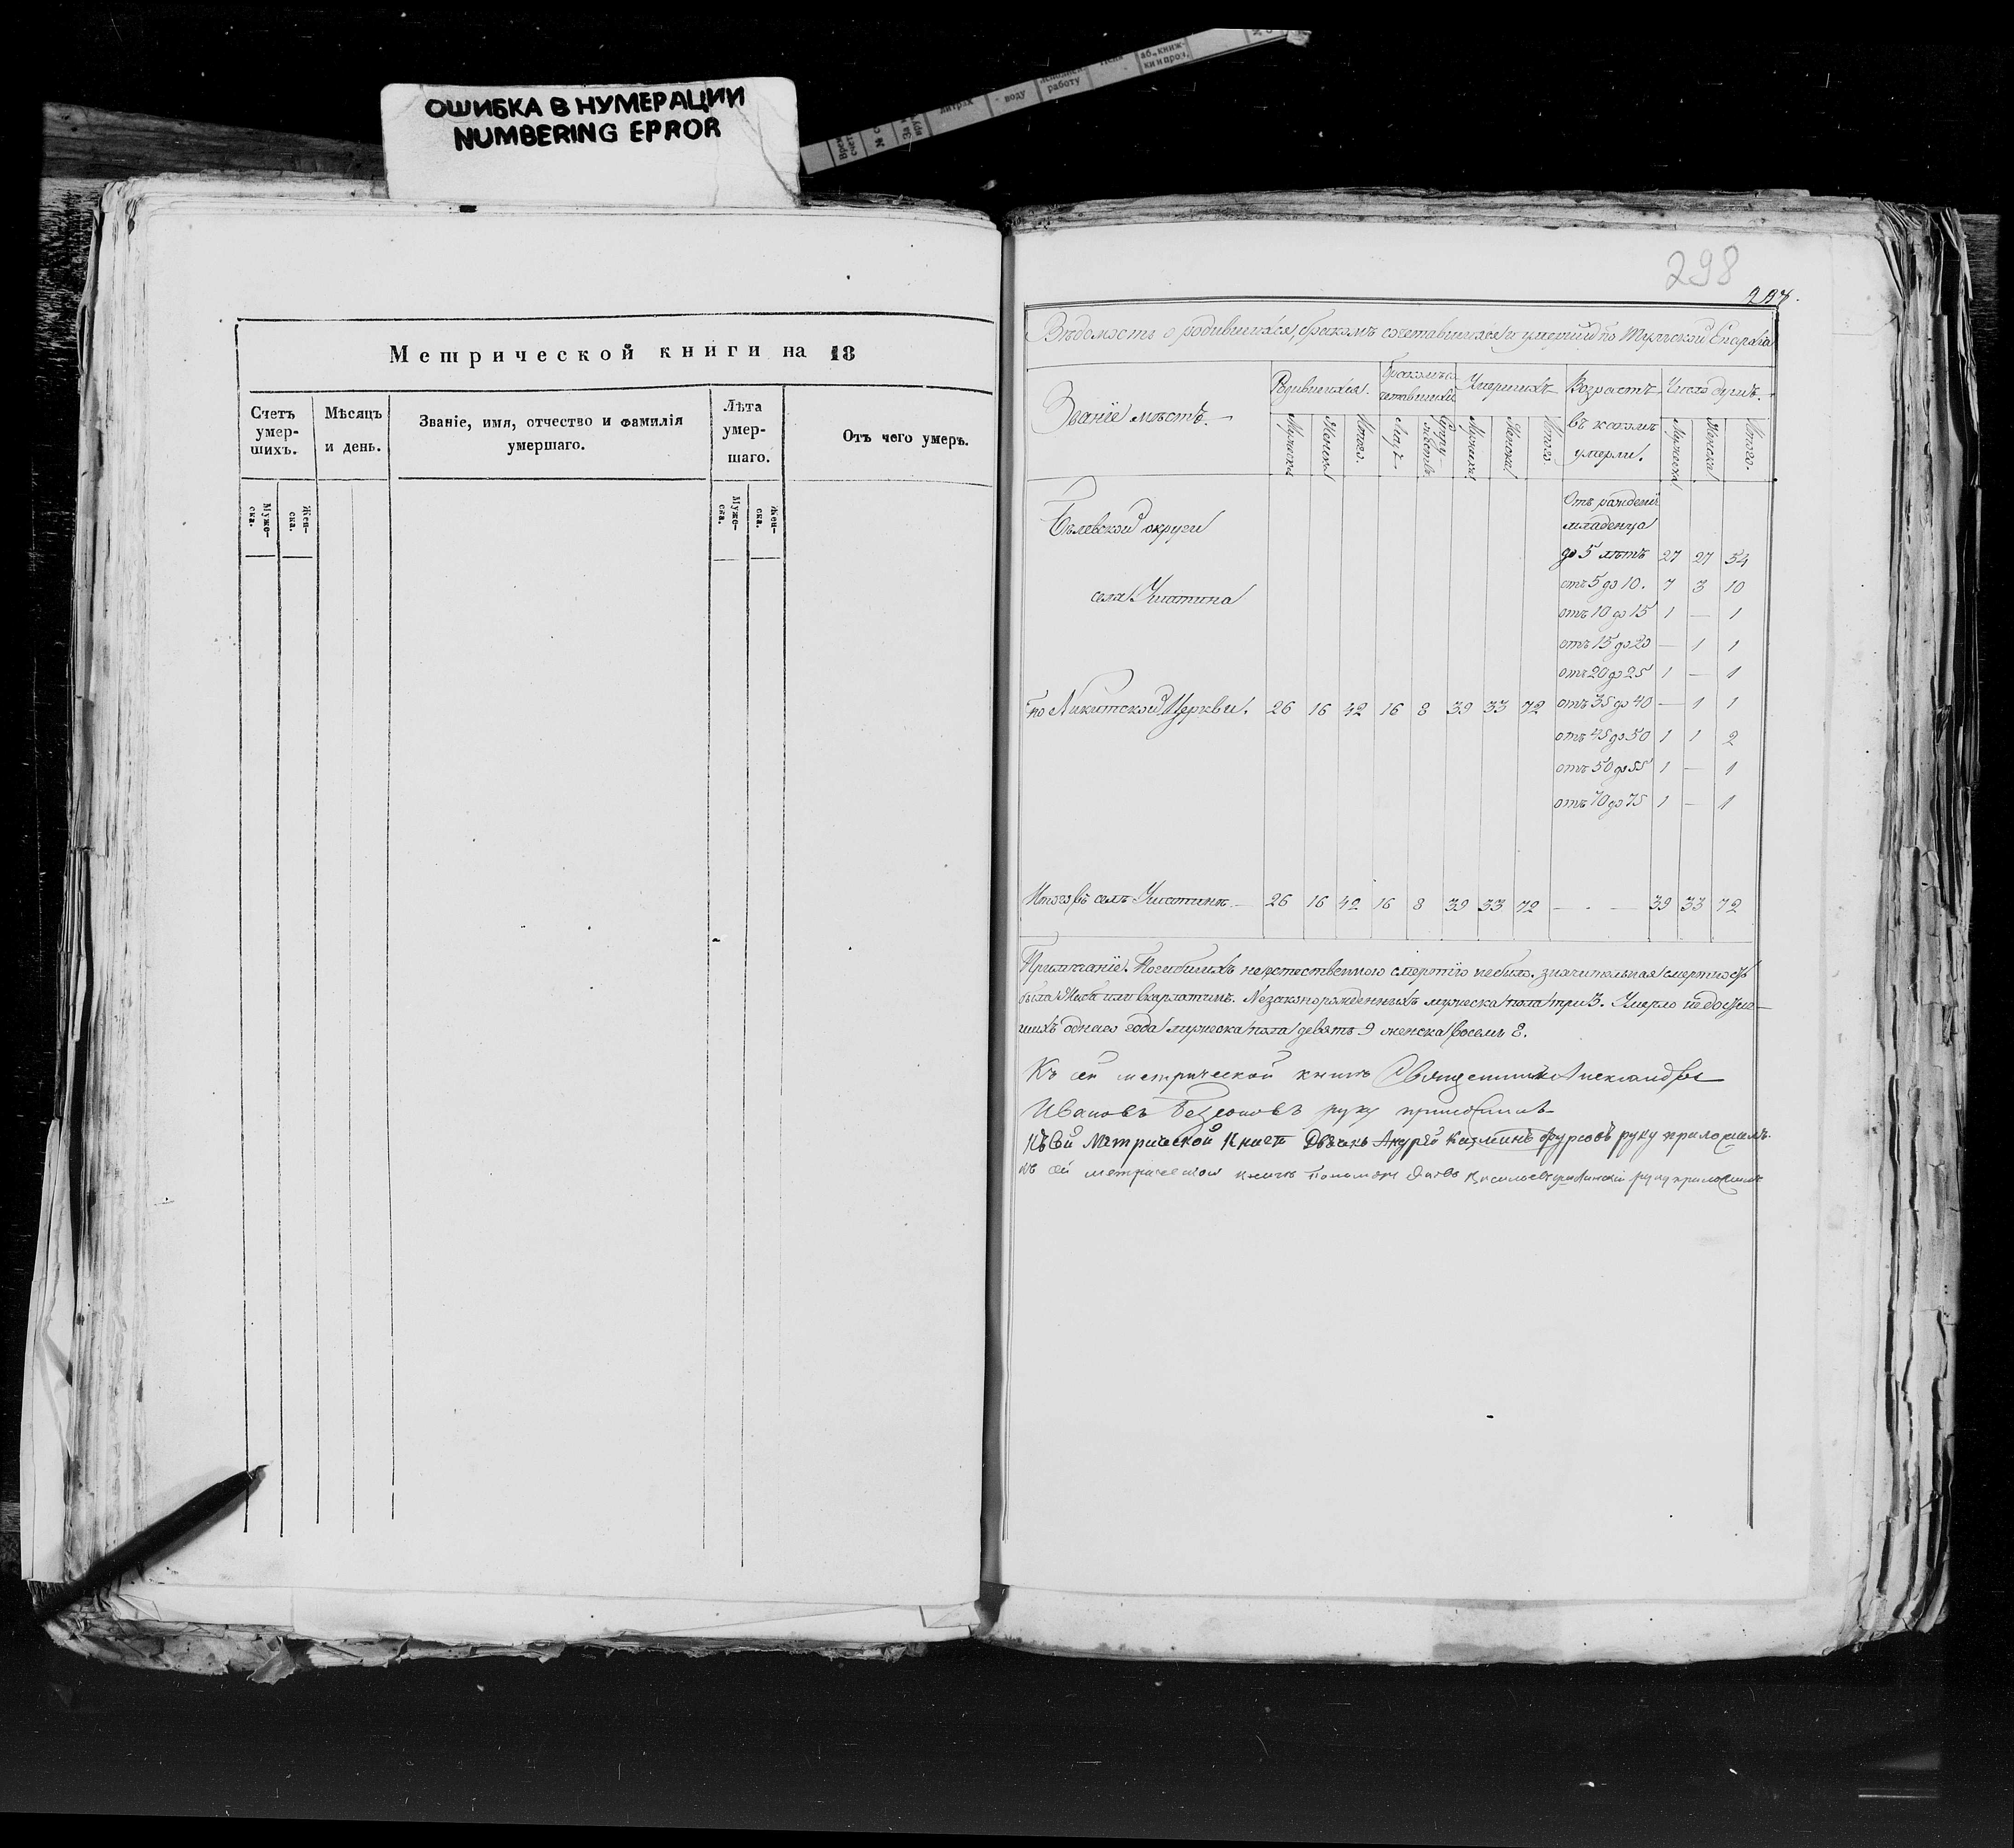 ОШИБКА В НУМЕРАЦИИ
NUMBERING ЕРРОR
литрах
воду
работу
аб. книж-
ки и проч.
Метрической книги на 18
Счетъ умер-шихъ.
Мѣсяцъ и день.
Званіе, имя, отчество и фамилія умершаго.
Лѣта умер-шаго.
Отъ чего умеръ.
Муже-ска.
Жен-ска.
Муже-ска.
Жен-ска.
298
Вѣдомость о родившихся, бракомъ сочетавшихся и умершихъ по Тульской Епархіи
Званіе мѣстъ.
Родившихся.
Бракомъ сочетавшихся
Умершихъ
Возрастъ въ какомъ умерли.
Число душъ.
Мужеска
Женска
Итого.
Лицъ
Супружествъ
Мужеска
Женска
Итого.
Мужеска
Женска
Итого.
Бѣлевской округи
Отъ рожденія
младенца
до 5 лѣтъ 27 27 54
отъ 5 до 10. 7 3 10
села Уистина
отъ 10 до 15 1 — 1
отъ 15 до 20 — 1 1
отъ 20 до 25 1 — 1
по Никитской Церкви. 26 16 42 16 8 39 33 72 отъ 35 до 40 — 1 1
отъ 45 до 50 1 1 2
отъ 50 до 55 1 — 1
отъ 70 до 75 1 — 1
Итого въ селѣ Уистинѣ — 26 16 42 16 8 39 33 72 — . — 39 33 72
Примѣчаніе. Погибшихъ неестественною смертію не было. значительная смертность
была Жаба или скарлатинъ. Незаконорожденныхъ мужеска пола три 3. Умерло недостиг-
шихъ однаго года мужеска пола девять 9 женска восемь 8.
Къ сей метрической книгѣ Священникъ Александръ
Ивановъ Безсоновъ руку приложилъ
Къ Сей Метрической Книгѣ Дьячекъ Андрей Казминъ Фурсовъ руку приложилъ.
къ сей метрической книгѣ Пономарь руку приложилъ